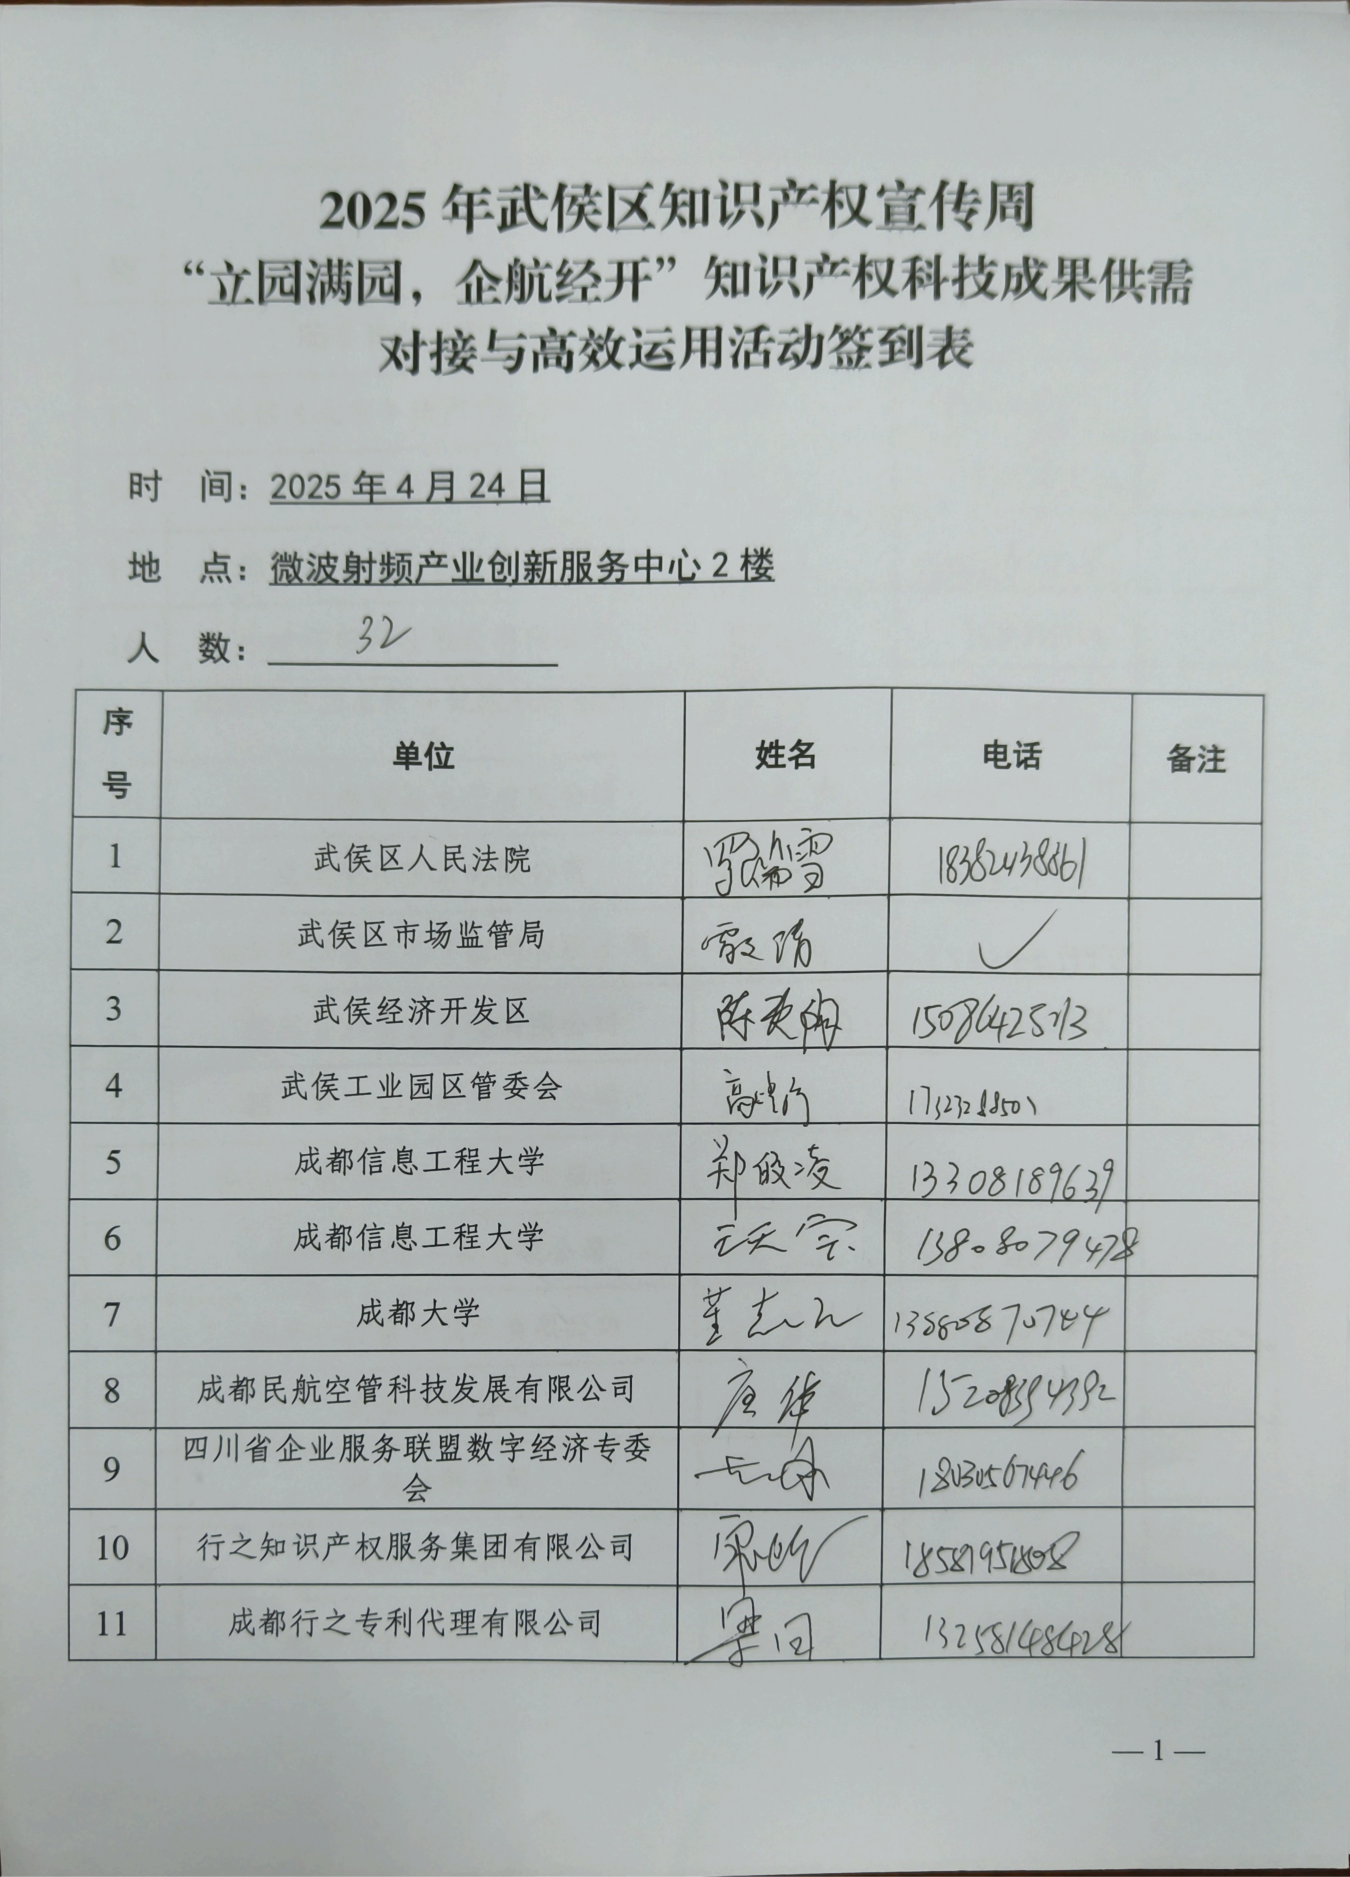 2025年武侯区知识产权宣传周
“立园满园，企航经开”知识产权科技成果供需
对接与高效运用活动签到表
时 间：2025年4月24日
地 点：微波射频产业创新服务中心2楼
人 数：32
序号 单位 姓名 电话 备注
1 武侯区人民法院 18382438861
2 武侯区市场监管局 ✓
3 武侯经济开发区
4 武侯工业园区管委会
5 成都信息工程大学 13308189639
6 成都信息工程大学 13808079478
7 成都大学
8 成都民航空管科技发展有限公司
9 四川省企业服务联盟数字经济专委
会
10 行之知识产权服务集团有限公司
11 成都行之专利代理有限公司
— 1 —